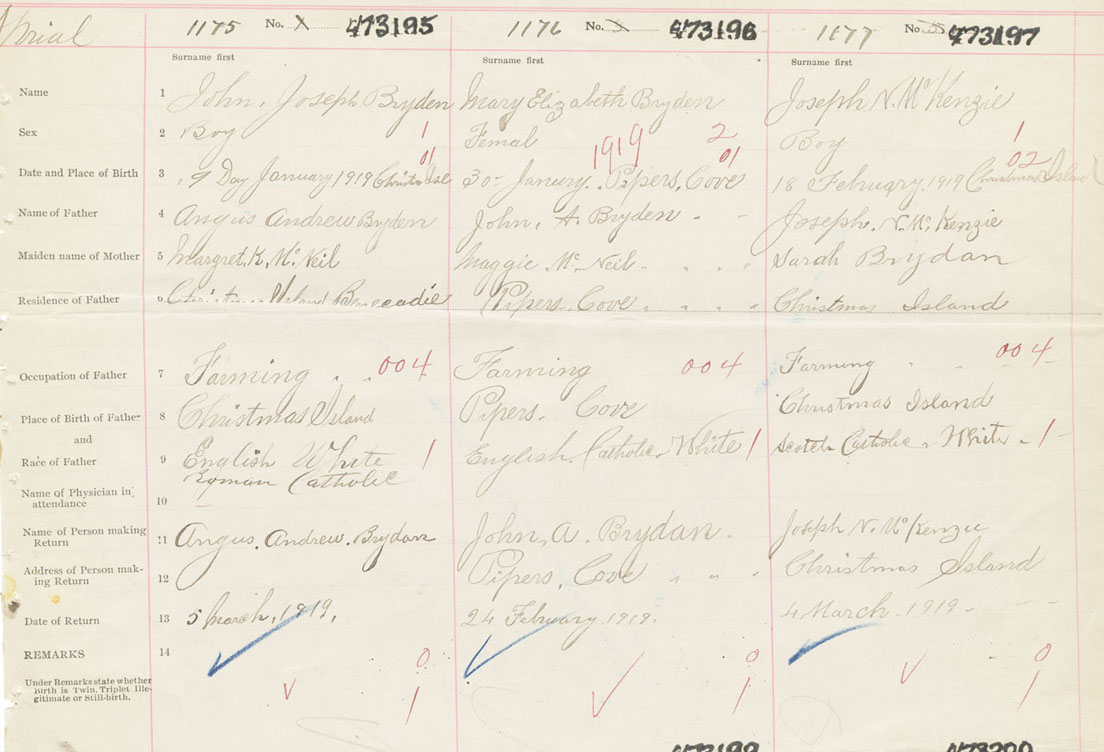 1175 No. 1 473195 1176 No. 2 473196 1177 No. 3 473197
Surname first Surname first Surname first
Name 1 John, Joseph Bryden Mary Elizabeth Bryden Joseph N. McKenzie
Sex 2 Boy 1 Femal 1919 2 Boy 1
01 01 02
Date and Place of Birth 3 Day January 1919 30 Janury. Pipers. Cove 18 February. 1919 Christmas Island
Name of Father 4 Angus Andrew Bryden John, A. Bryden - - Joseph. N. Mc. Kenzie
Maiden name of Mother 5 Margret. K. Mc Neil Maggie. Mc. Neil. Sarah Brydan
Residence of Father 6 Island Benecadie Pipers. Cove Christmas Island
Occupation of Father 7 Farming 004 Farming 004 Farming 004
Place of Birth of Father 8 Christmas Island Pipers. Cove Christmas Island
and
Race of Father 9 English White 1 English. Catholic. White 1 Scotch Catholic. White - 1 -
Roman Catholic
Name of Physician in
attendance 10 -
Name of Person making
Return 11 Angus. Andrew. Brydan John, A. Brydan. Joseph N. Mc Kenzie
Address of Person mak-
ing Return 12 Pipers. Cove Christmas Island
Date of Return 13 5 March, 1919, 24 February. 1919. 4 March. 1919-
REMARKS 14 0 0 0
Under Remarks state whether
Birth is Twin, Triplet Ille-
gitimate or Still-birth. 1 1 1